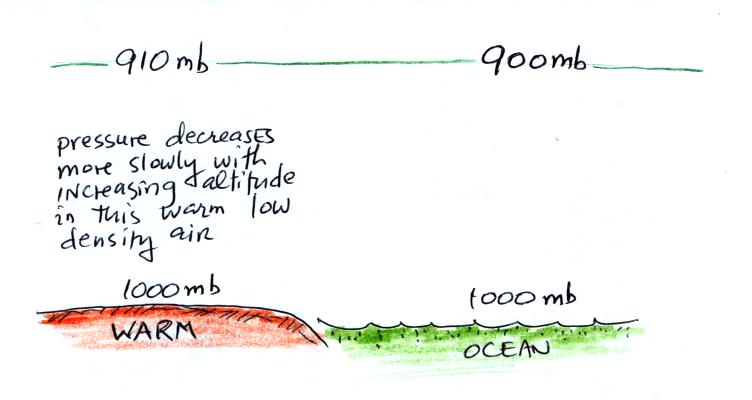 910 mb
900mb
pressure decreases
more slowly with
increasing altitude
in this warm low
density air
1000 mb
1000 mb
WARM
OCEAN